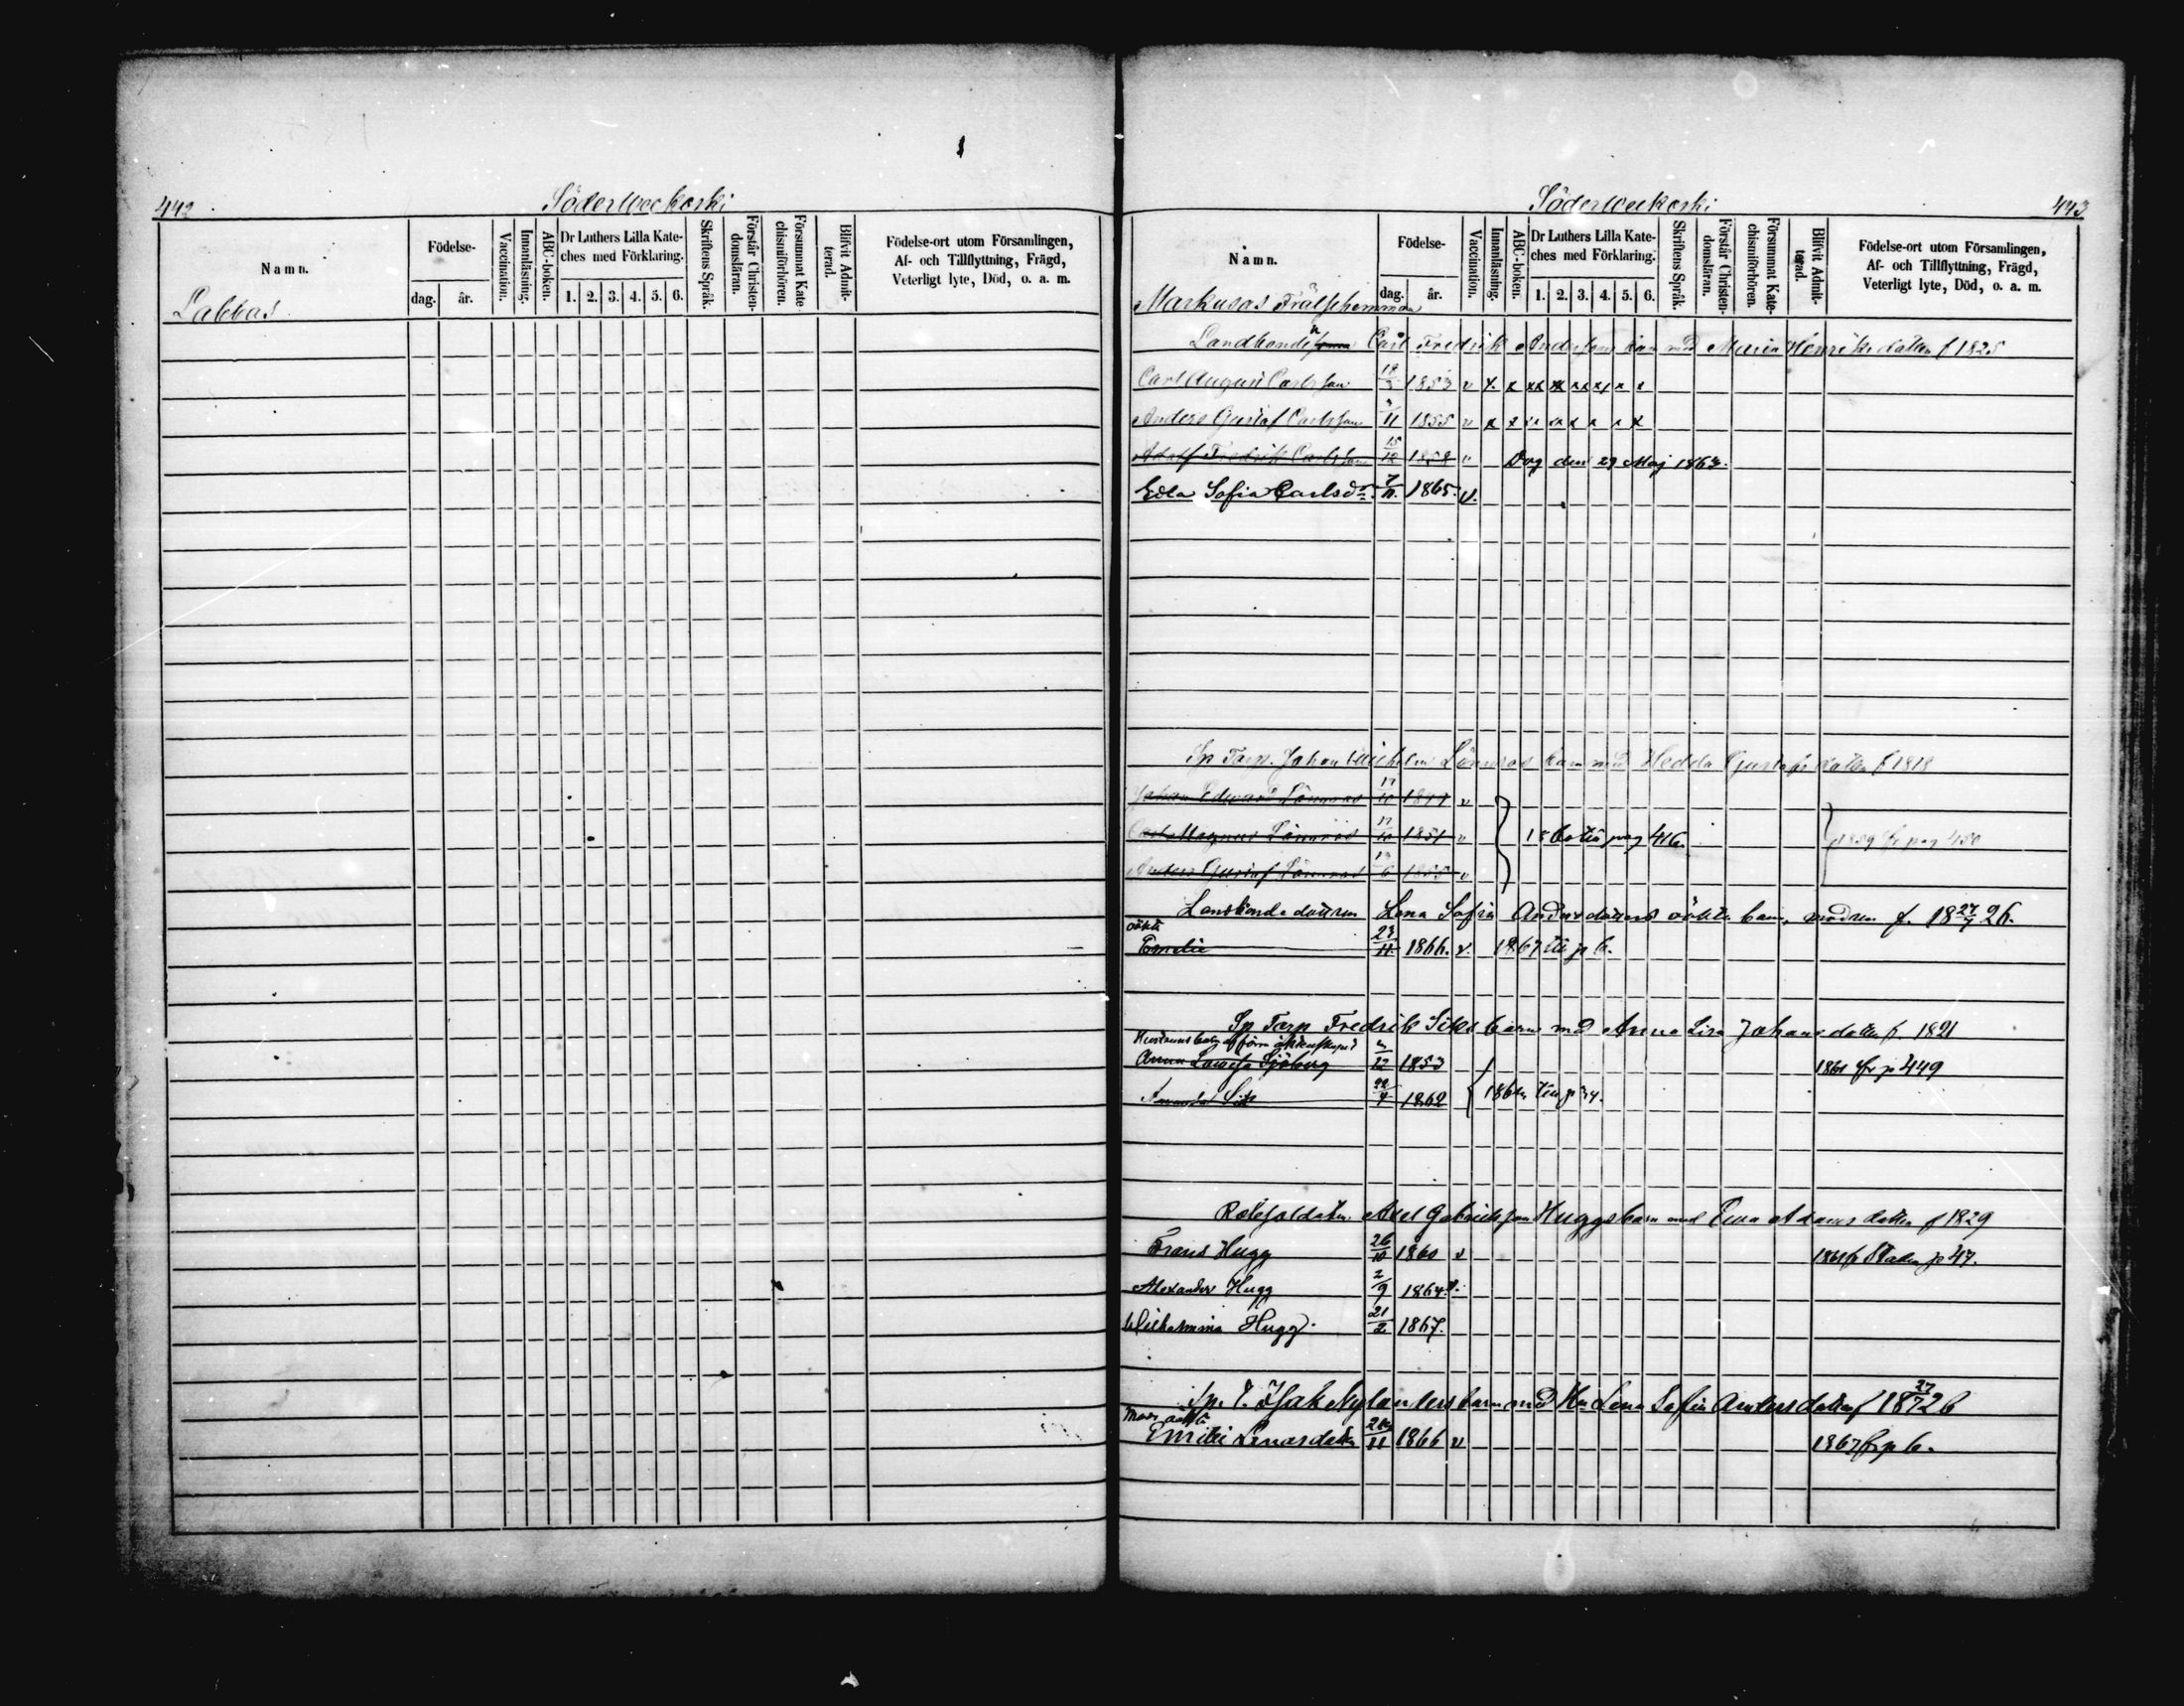 442
Söderweckoski
Namn.
Födelse-
dag.
år.
Vaccination.
Innanläsning.
ABC-boken.
Dr Luthers Lilla Kate-
ches med Förklaring.
1. 2. 3. 4. 5. 6.
Skriftens Språk.
Förstår Christen-
domsläran.
Försummat Kate-
chismiförhören.
Blifvit Admit-
terad.
Födelse-ort utom Församlingen,
Af- och Tillflyttning, Frägd,
Veterligt lyte, Död, o. a. m.
Labbas
Söderweckoski
443
Namn.
Födelse-
dag.
år.
Vaccination.
Innanläsning.
ABC-boken.
Dr Luthers Lilla Kate-
ches med Förklaring.
1. 2. 3. 4. 5. 6.
Skriftens Språk.
Förstår Christen-
domsläran.
Försummat Kate-
chismiförhören.
Blifvit Admit-
terad.
Födelse-ort utom Församlingen,
Af- och Tillflyttning, Frägd,
Veterligt lyte, Död, o. a. m.
Markusas Frälsehemman
Landbonden Carl Fredrik Anderssons barn med Maria Henriksdotter f 1825
Carl August Carlsson 1853 v x x xx xx xx xx x x
Anders Gustaf Carlsson /11 1855 v x x x x x x x x
Adolf Fredrik Carlsson 15/12 1858 v Dog den 29 Maj 1863.
Edla Sofia Carlsdr. 7/11. 1865. v.
Sp Torp. Johan Wilhelm Lönnros barn med Hedda Gustafsdotter f 1818
Johan Edward Lönnros 17/10 v
Carl Magnus Lönnros 17/10 1851 v till pag 416. 1859 fr pag
Anders Gustaf Lönnros v
Landbonde dottren Lena Sofia Andersdotters oäkta barn, modren f. 18 27/7 26.
oäkta
Emelie 23/11. 1866. v. 1867 till p 6.
Sp Torp Fredrik Siks barn med Anna Lisa Johansdotter f. 1821
Hustruns barn af förra äktenskapet
Anna Lovisa Sjöberg /12 1853 1861 fr p 449
Sik 22/9 1862
Rotesoldaten Axel Gabrielsson Huggs barn med Eva Adamsdotter f 1829
Frans Hugg 26/10 1860 v 1861 fr p 47.
Alexander Hugg 2/9 1864. v.
Wilhelmina Hugg. 21/2 1867.
Sp. T. Isak Nylanders barn med Hu Lena Sofia Andersdotter f 18 27/7 26
oäkta
Emilie Lenasdotter 23/11 1866 v 1867 fr p 6.